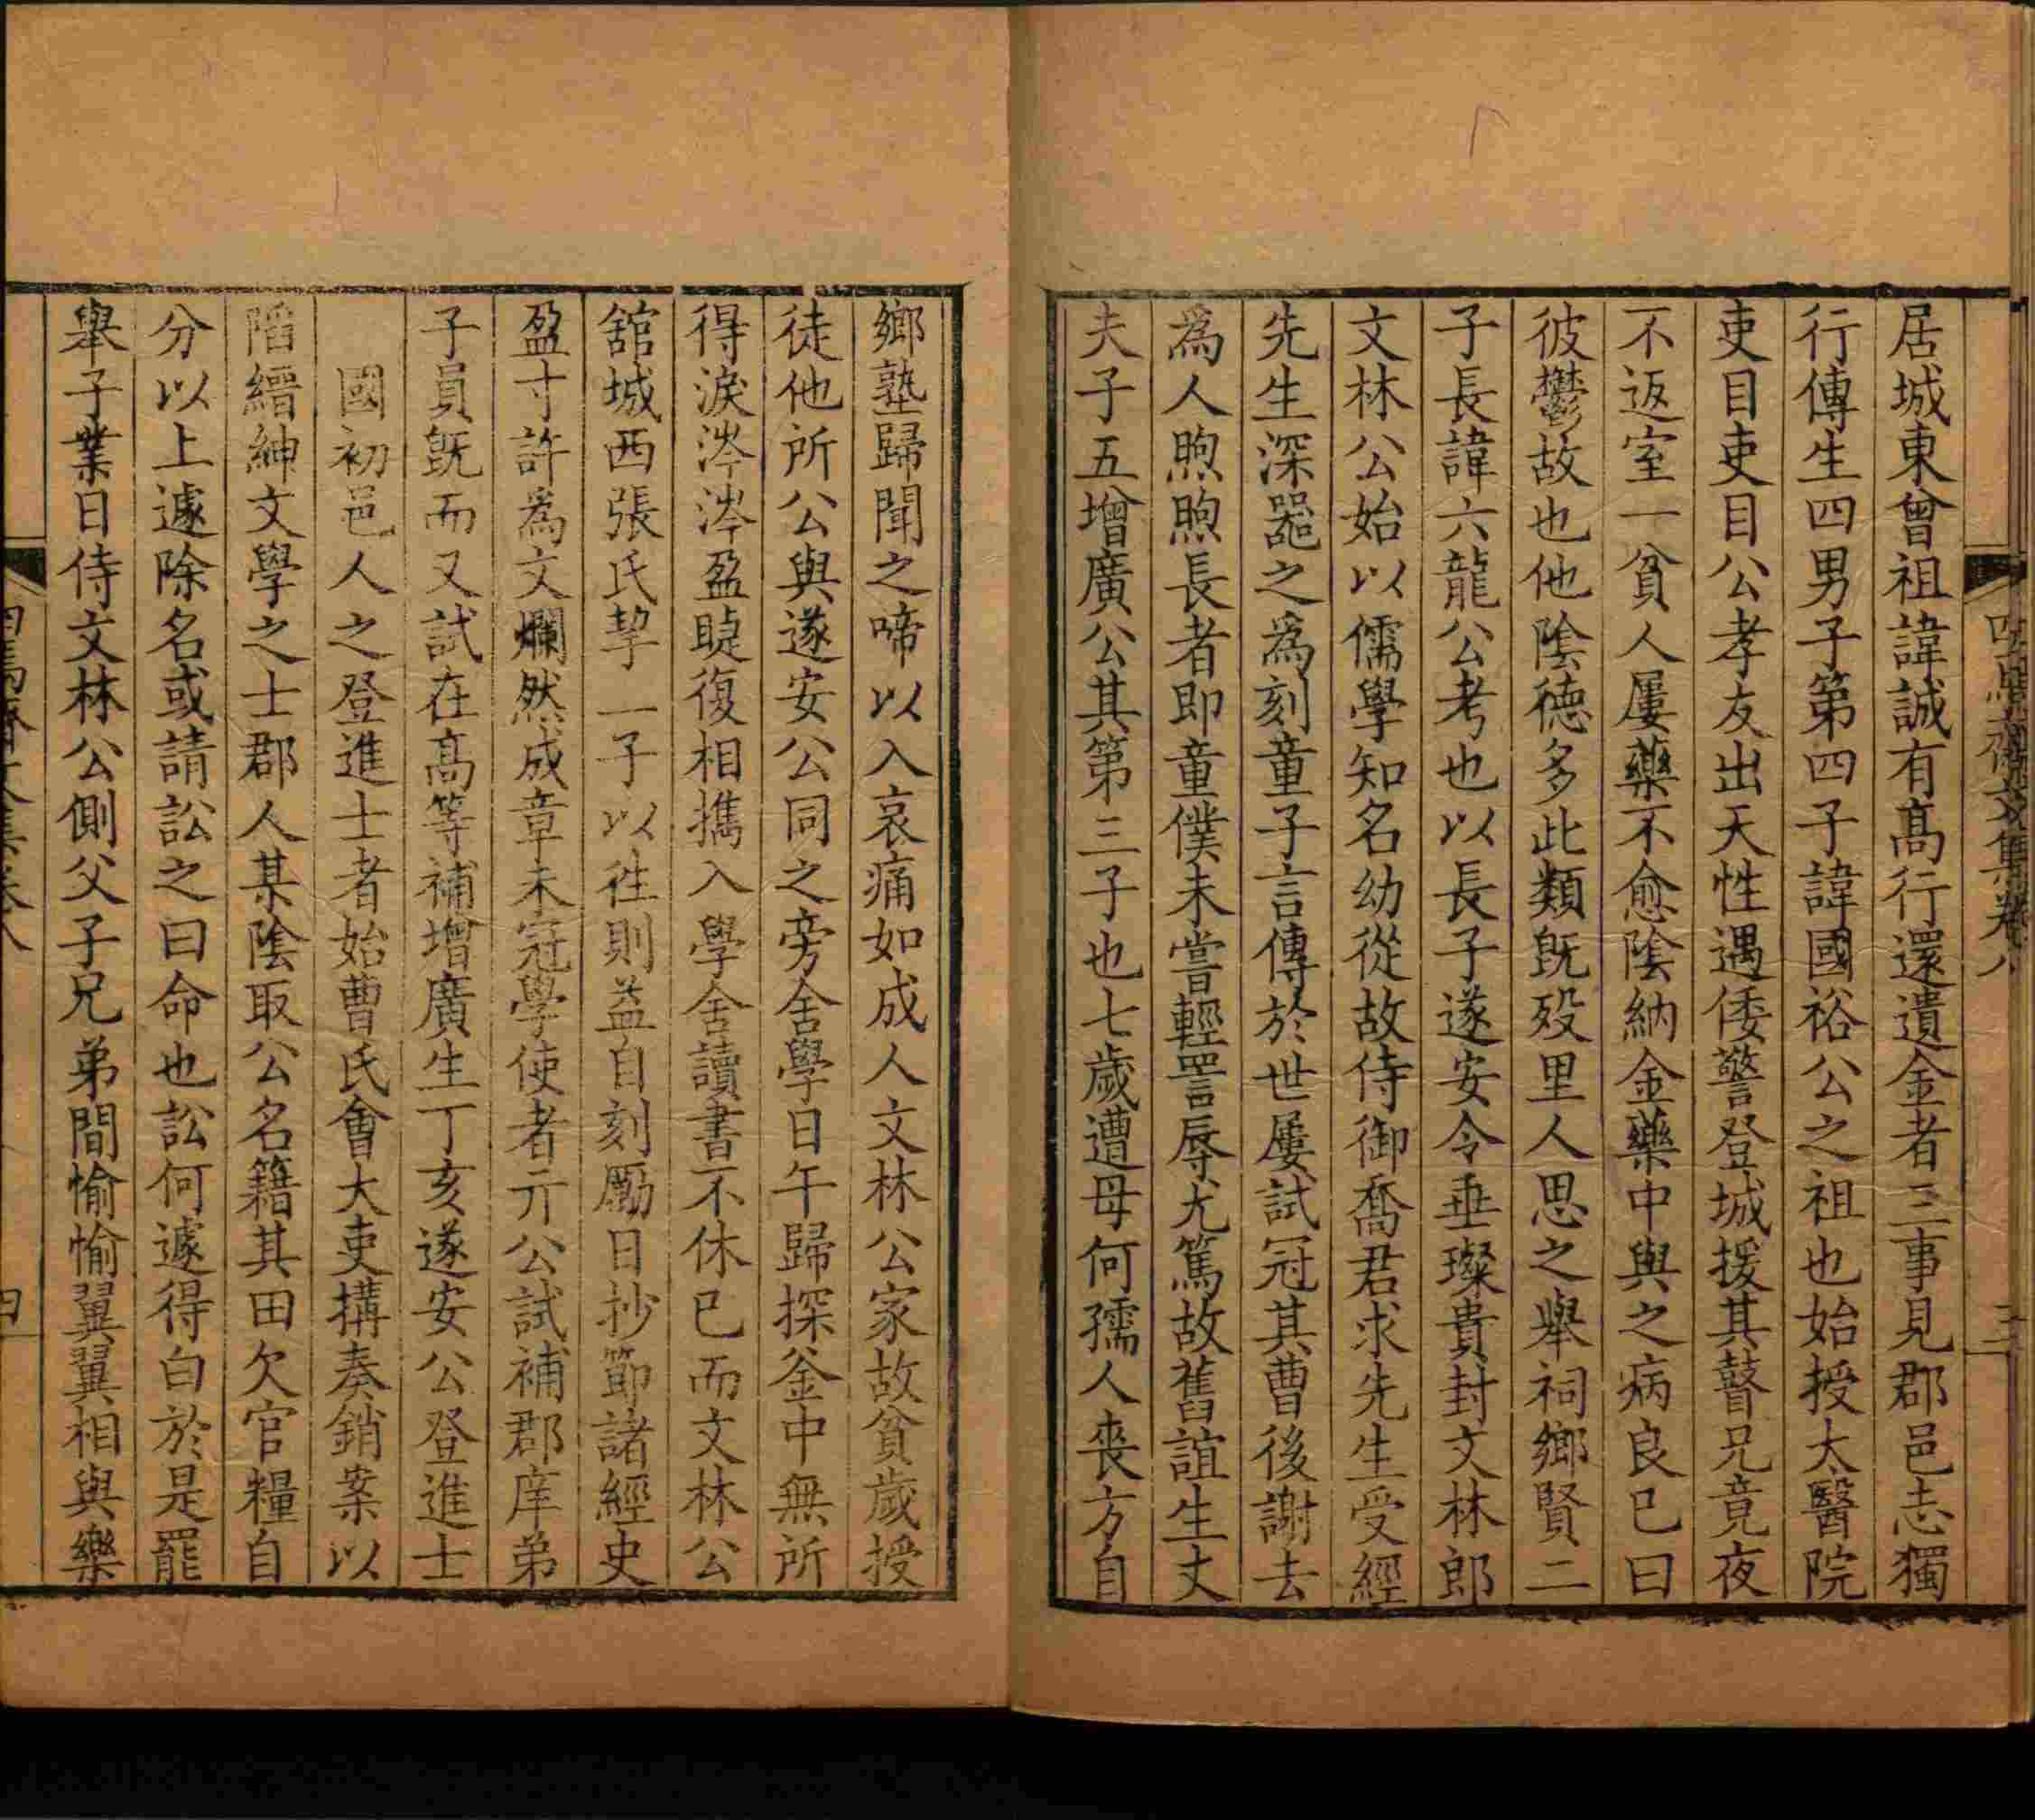 四焉齋文集卷八
三
居城東曾祖諱誠有高行還遺金者三事見郡邑志獨
行傳生四男子第四子諱國裕公之祖也始授太醫院
吏目吏目公孝友出天性遇倭警登城援其瞽兄竟夜
不返室一貧人屢藥不愈陰納金藥中與之病良已曰
彼鬱故也他陰德多此類旣歿里人思之舉祠鄉賢二
子長諱六龍公考也以長子遂安令垂璨貴封文林郎
文林公始以儒學知名幼從故侍御喬君求先生受經
先生深噐之爲刻童子言傳於世屢試冠其曹後謝去
爲人煦煦長者即童僕未嘗輕詈辱尤篤故舊誼生丈
夫子五增廣公其第三子也七歲遭母何孺人喪方自
鄉塾歸聞之啼以入哀痛如成人文林公家故貧歲授
徒他所公與遂安公同之旁舍學日午歸探釜中無所
得淚涔涔盈睫復相擕入學舍讀書不休已而文林公
舘城西張氏挈一子以徃則益自刻厲日抄節諸經史
盈寸許爲文爛然成章未冠學使者亓公試補郡庠弟
子員旣而又試在高等補增廣生丁亥遂安公登進士
國初邑人之登進士者始曹氏會大吏搆奏銷案以
䧟縉紳文學之士郡人某陰取公名籍其田欠官糧自
分以上遽除名或請訟之曰命也訟何遽得白於是罷
舉子業日侍文林公側父子兄弟間愉愉翼翼相與樂
四焉齋文集卷八
四